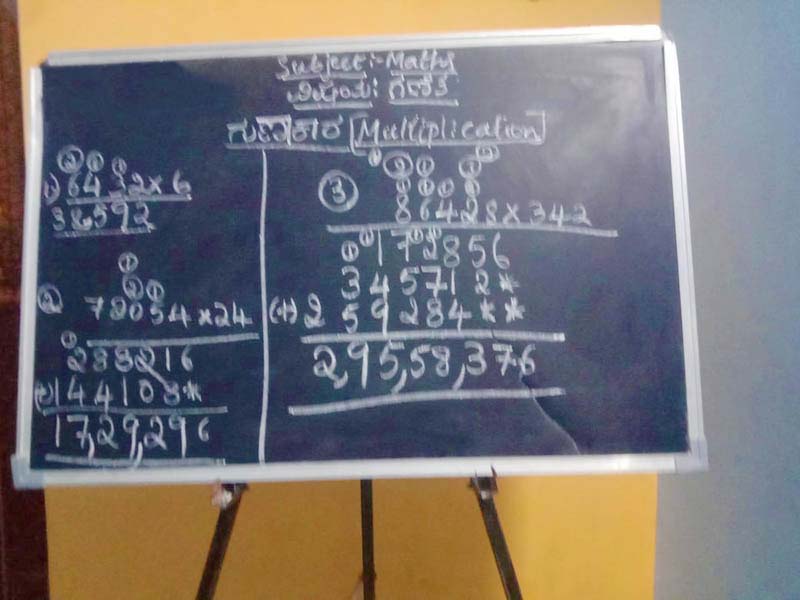 Subject:- Maths
ವಿಷಯ: ಗಣಿತ
ಗುಣಾಕಾರ [Multiplication]
② ① ①
1) 6432×6
38592
①
② ①
② 72054×24
①
288216
(+)144108*
17,29,296
① ② ① ① ②
① ① ⓪ ①
③ 86428×342
① ① ① ①
172856
345712*
(+) 259284**
2,95,58,376